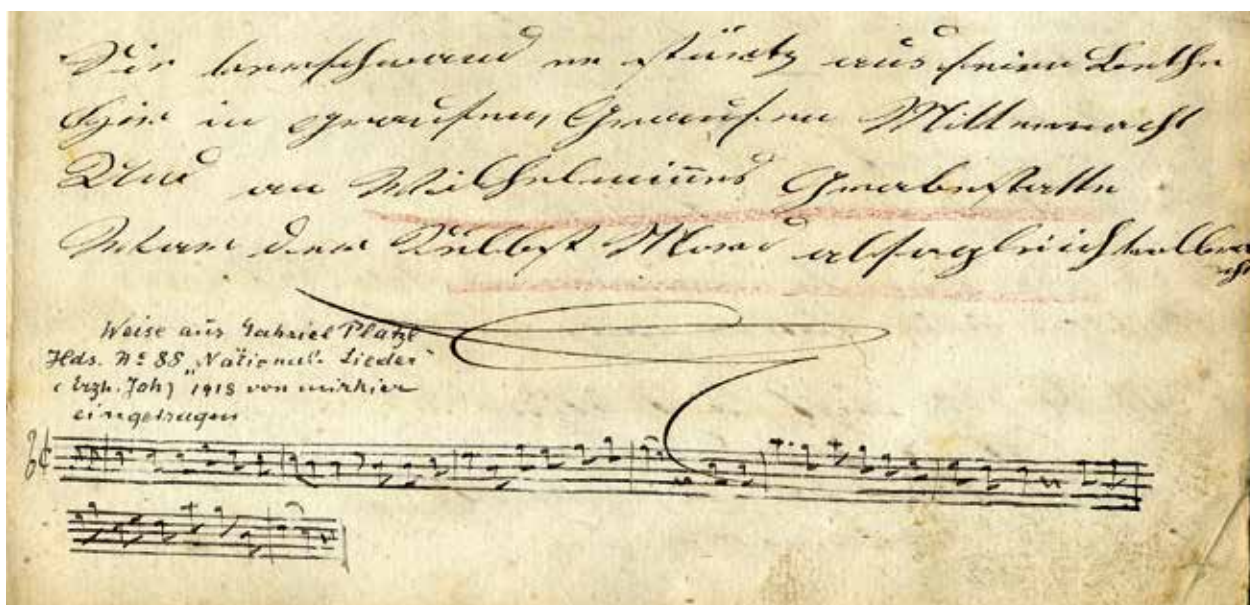 verschwand er stürtz aus seinen Bethe
Hin in grausen, Grausen Mitternacht
Und an Wilhelmines Grabestatte
der Selbst Mord alsogleich vollbra
cht
Weise aus Gabriel Platzl
Hds. No 85 „National-Lieder“
(Erzh. Joh) 1918 von mir hier
eingetragen